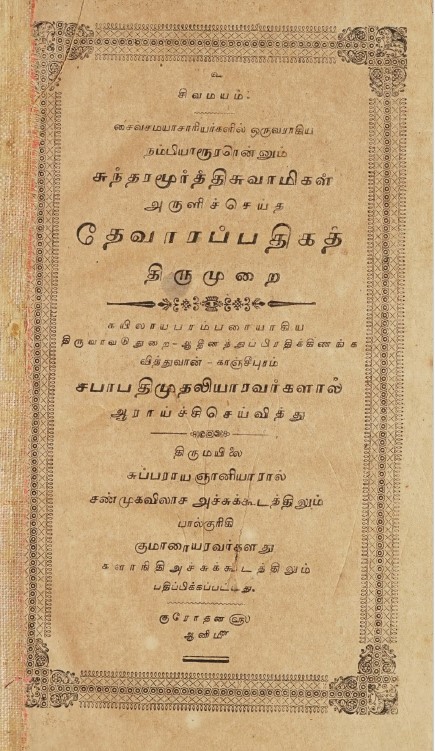 உ
சிவமயம்.
சைவசமயாசாரியாகளில் ஒருவராகிய
நம்பியாரூரரென்னும்
சுந்தரமூர்த்திசுவாமிகள்
அருளிச்செய்த
தேவாரப்பதிகத்
திருமுறை
கயிலாயபரம்பரையாகிய
திருவாவடுதுறை-ஆதீனத்துப்பிரதிக்கிணங்க
வித்துவான் - காஞ்சிபுரம்
சபாபதிமுதலியாரவர்களால்
ஆராய்ச்சிசெய்வித்து
திருமயிலை
சுப்பராயஞானியாரால்
சண்முகவிலாச அச்சுக்கூடத்திலும்
பால்குரிகி
குமாரையரவர்களது
களாநிதிஅச்சுக்கூடத்திலும்
பதிப்பிக்கப்பட்டது.
குரோதன௵
ஆனி௴